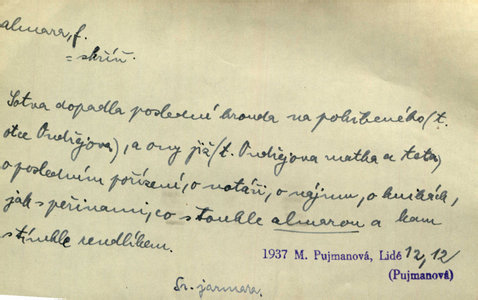 almara, f.
= skříň.
Sotva dopadla poslední hrouda na pohřbeného (t.
otce Ondřejova), a ony již (t. Ondřejova matka a teta)
o posledním pořízení, o notáři, o nájmu, o knihách,
jak s peřinami, co s touhle almarou a kam
s tímhle rendlíkem.
1937 M. Pujmanová, Lidé 12,12
(Pujmanová)
Sr. jarmara.